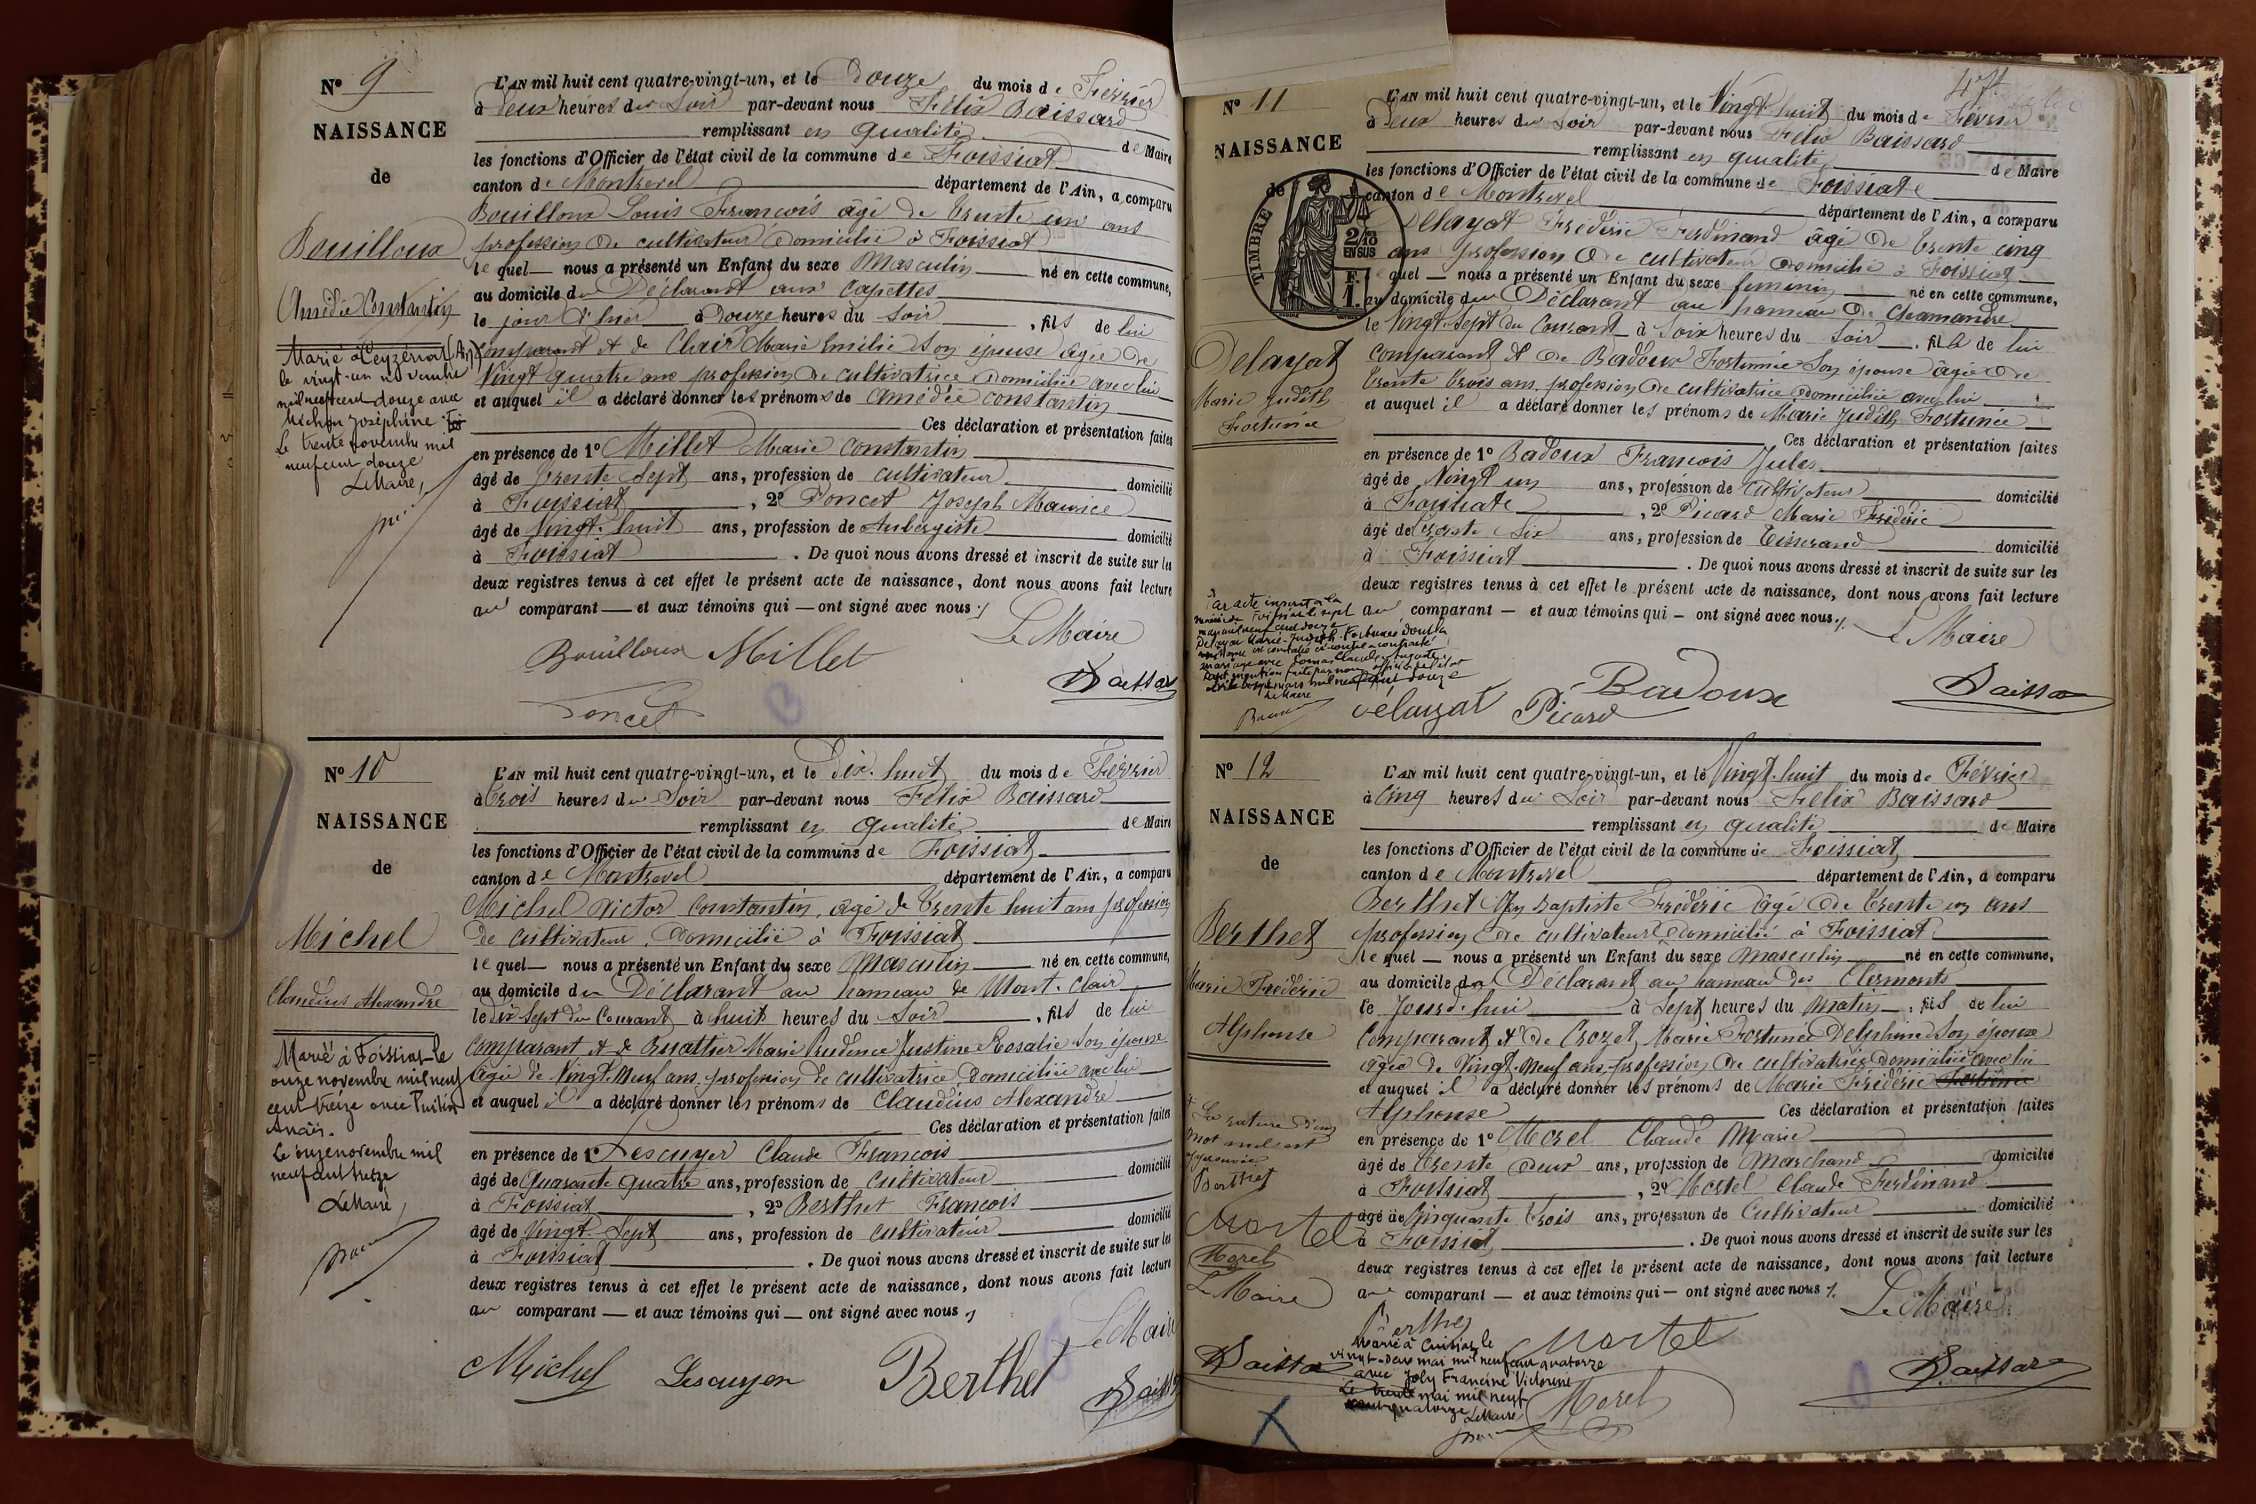 No 9
NAISSANCE
de
Bouilloux
Amédée Constantin
Marié à Ceyzériat (Ain)
le vingt-un novembre
mil neuf cent douze avec
Michon Joséphine
Le trente novembre mil
neuf cent douze
Le Maire,
L'AN mil huit cent quatre-vingt-un, et le Douze du mois de Février
à deux heures du Soir par-devant nous Félix Baissard
remplissant en qualité de Maire
les fonctions d'Officier de l'état civil de la commune de Foissiat
canton de Montrevel département de l'Ain, a comparu
Bouilloux Louis François âgé de trente un ans
profession de cultivateur domicilié à Foissiat
lequel — nous a présenté un Enfant du sexe Masculin né en cette commune,
au domicile du Déclarant aux Capettes
le jour d'hier à Douze heures du Soir, fils de lui
comparant et de Clair Marie Emilie Son épouse âgée de
Vingt quatre ans profession de cultivatrice domiciliée avec lui
et auquel il a déclaré donner les prénoms de Amédée Constantin
Ces déclaration et présentation faites
en présence de 1o Millet Marie Constantin
âgé de trente Sept ans, profession de cultivateur domicilié
à Foissiat, 2o Poncet Joseph Maurice
âgé de Vingt-huit ans, profession de Aubergiste domicilié
à Foissiat. De quoi nous avons dressé et inscrit de suite sur les
deux registres tenus à cet effet le présent acte de naissance, dont nous avons fait lecture
au comparant — et aux témoins qui — ont signé avec nous
Le Maire
Bouilloux Millet
Poncet Baissard
No 10
NAISSANCE
de
Michel
Claudius Alexandre
Marié à Foissiat le
onze novembre mil neuf
cent treize avec
Anaïs.
Le onze novembre mil
neuf cent treize
Le Maire,
L'AN mil huit cent quatre-vingt-un, et le Dix-huit du mois de Février
à trois heures du Soir par-devant nous Félix Baissard
remplissant en qualité de Maire
les fonctions d'Officier de l'état civil de la commune de Foissiat
canton de Montrevel département de l'Ain, a comparu
Michel Victor Constantin, âgé de trente huit ans profession
de cultivateur, domicilié à Foissiat
lequel — nous a présenté un Enfant du sexe Masculin né en cette commune,
au domicile du Déclarant au hameau de Mont-Clair
le dix Sept du Courant à huit heures du Soir, fils de lui
comparant et de Marie Prudence Justine Rosalie Son épouse
âgée de Vingt-Neuf ans profession de cultivatrice domiciliée avec lui
et auquel il a déclaré donner les prénoms de Claudius Alexandre
Ces déclaration et présentation faites
en présence de 1o Lescuyer Claude François
âgé de Quarante quatre ans, profession de cultivateur domicilié
à Foissiat, 2o Berthet François
âgé de Vingt-Sept ans, profession de cultivateur domicilié
à Foissiat. De quoi nous avons dressé et inscrit de suite sur les
deux registres tenus à cet effet le présent acte de naissance, dont nous avons fait lecture
au comparant — et aux témoins qui — ont signé avec nous
Le Maire
Michel Lescuyer Berthet Baissard
47
No 11
NAISSANCE
de
TIMBRE
2/10
EN SUS
F.
1.
Delayat
Marie Judith
Fortunée
L'AN mil huit cent quatre-vingt-un, et le Vingt huit du mois de Février
à deux heures du Soir par-devant nous Félix Baissard
remplissant en qualité de Maire
les fonctions d'Officier de l'état civil de la commune de Foissiat
canton de Montrevel département de l'Ain, a comparu
Delayat Frédéric Ferdinand âgé de trente cinq
ans profession de cultivateur domicilié à Foissiat
lequel — nous a présenté un Enfant du sexe féminin né en cette commune,
au domicile du Déclarant au hameau de Chamandre
le Vingt-Sept du Courant à Soix heures du Soir, fille de lui
comparant et de Badoux Fortunée Son épouse âgée de
trente trois ans, profession de cultivatrice domiciliée avec lui
et auquel il a déclaré donner les prénoms de Marie Judith Fortunée
Ces déclaration et présentation faites
en présence de 1o Badoux François Jules
âgé de Vingt un ans, profession de Cultivateur domicilié
à Foissiat, 2o Picard Marie Frédéric
âgé de trente Six ans, profession de Tisserand domicilié
à Foissiat. De quoi nous avons dressé et inscrit de suite sur les
deux registres tenus à cet effet le présent acte de naissance, dont nous avons fait lecture
au comparant — et aux témoins qui — ont signé avec nous
Par acte inscrit à la
mairie de Foissiat le sept
mars mil neuf cent douze
Delayat Marie-Judith-Fortunée dont la
naissance est constatée ci-contre a contracté
mariage avec
mars mil neuf cent douze
Le Maire
Le Maire
Delayat Picard Badoux Baissard
No 12
NAISSANCE
de
Berthet
Marie Frédéric
Alphonse
La rature d'un
mot nul est
approuvée
Berthet
Martel
Morel
Le Maire
Baissard
L'AN mil huit cent quatre-vingt-un, et le Vingt-huit du mois de Février
à Cinq heures du Soir par-devant nous Félix Baissard
remplissant en qualité de Maire
les fonctions d'Officier de l'état civil de la commune de Foissiat
canton de Montrevel département de l'Ain, a comparu
Berthet Jn Baptiste Frédéric âgé de trente un ans
profession de cultivateur domicilié à Foissiat
lequel — nous a présenté un Enfant du sexe masculin né en cette commune,
au domicile du Déclarant au hameau des Clermonts
le Jourd-hui à Sept heures du Matin, fils de lui
Comparant et de Crozet Marie Fortunée Delphine Son épouse
âgée de Vingt-Neuf ans, profession de cultivatrice domiciliée avec lui
et auquel il a déclaré donner les prénoms de Marie Frédéric
Alphonse Ces déclaration et présentation faites
en présence de 1o Morel Claude Marie
âgé de trente deux ans, profession de Marchand domicilié
à Foissiat, 2o Martel Claude Ferdinand
âgé de Cinquante trois ans, profession de Cultivateur domicilié
à Foissiat. De quoi nous avons dressé et inscrit de suite sur les
deux registres tenus à cet effet le présent acte de naissance, dont nous avons fait lecture
au comparant — et aux témoins qui — ont signé avec nous
Le Maire
Berthet
Marié à le
vingt-deux mai mil neuf cent quatorze
avec Joly Francine Victorine
Le trente mai mil neuf
cent quatorze
Le Maire
Martel
Morel
Baissard